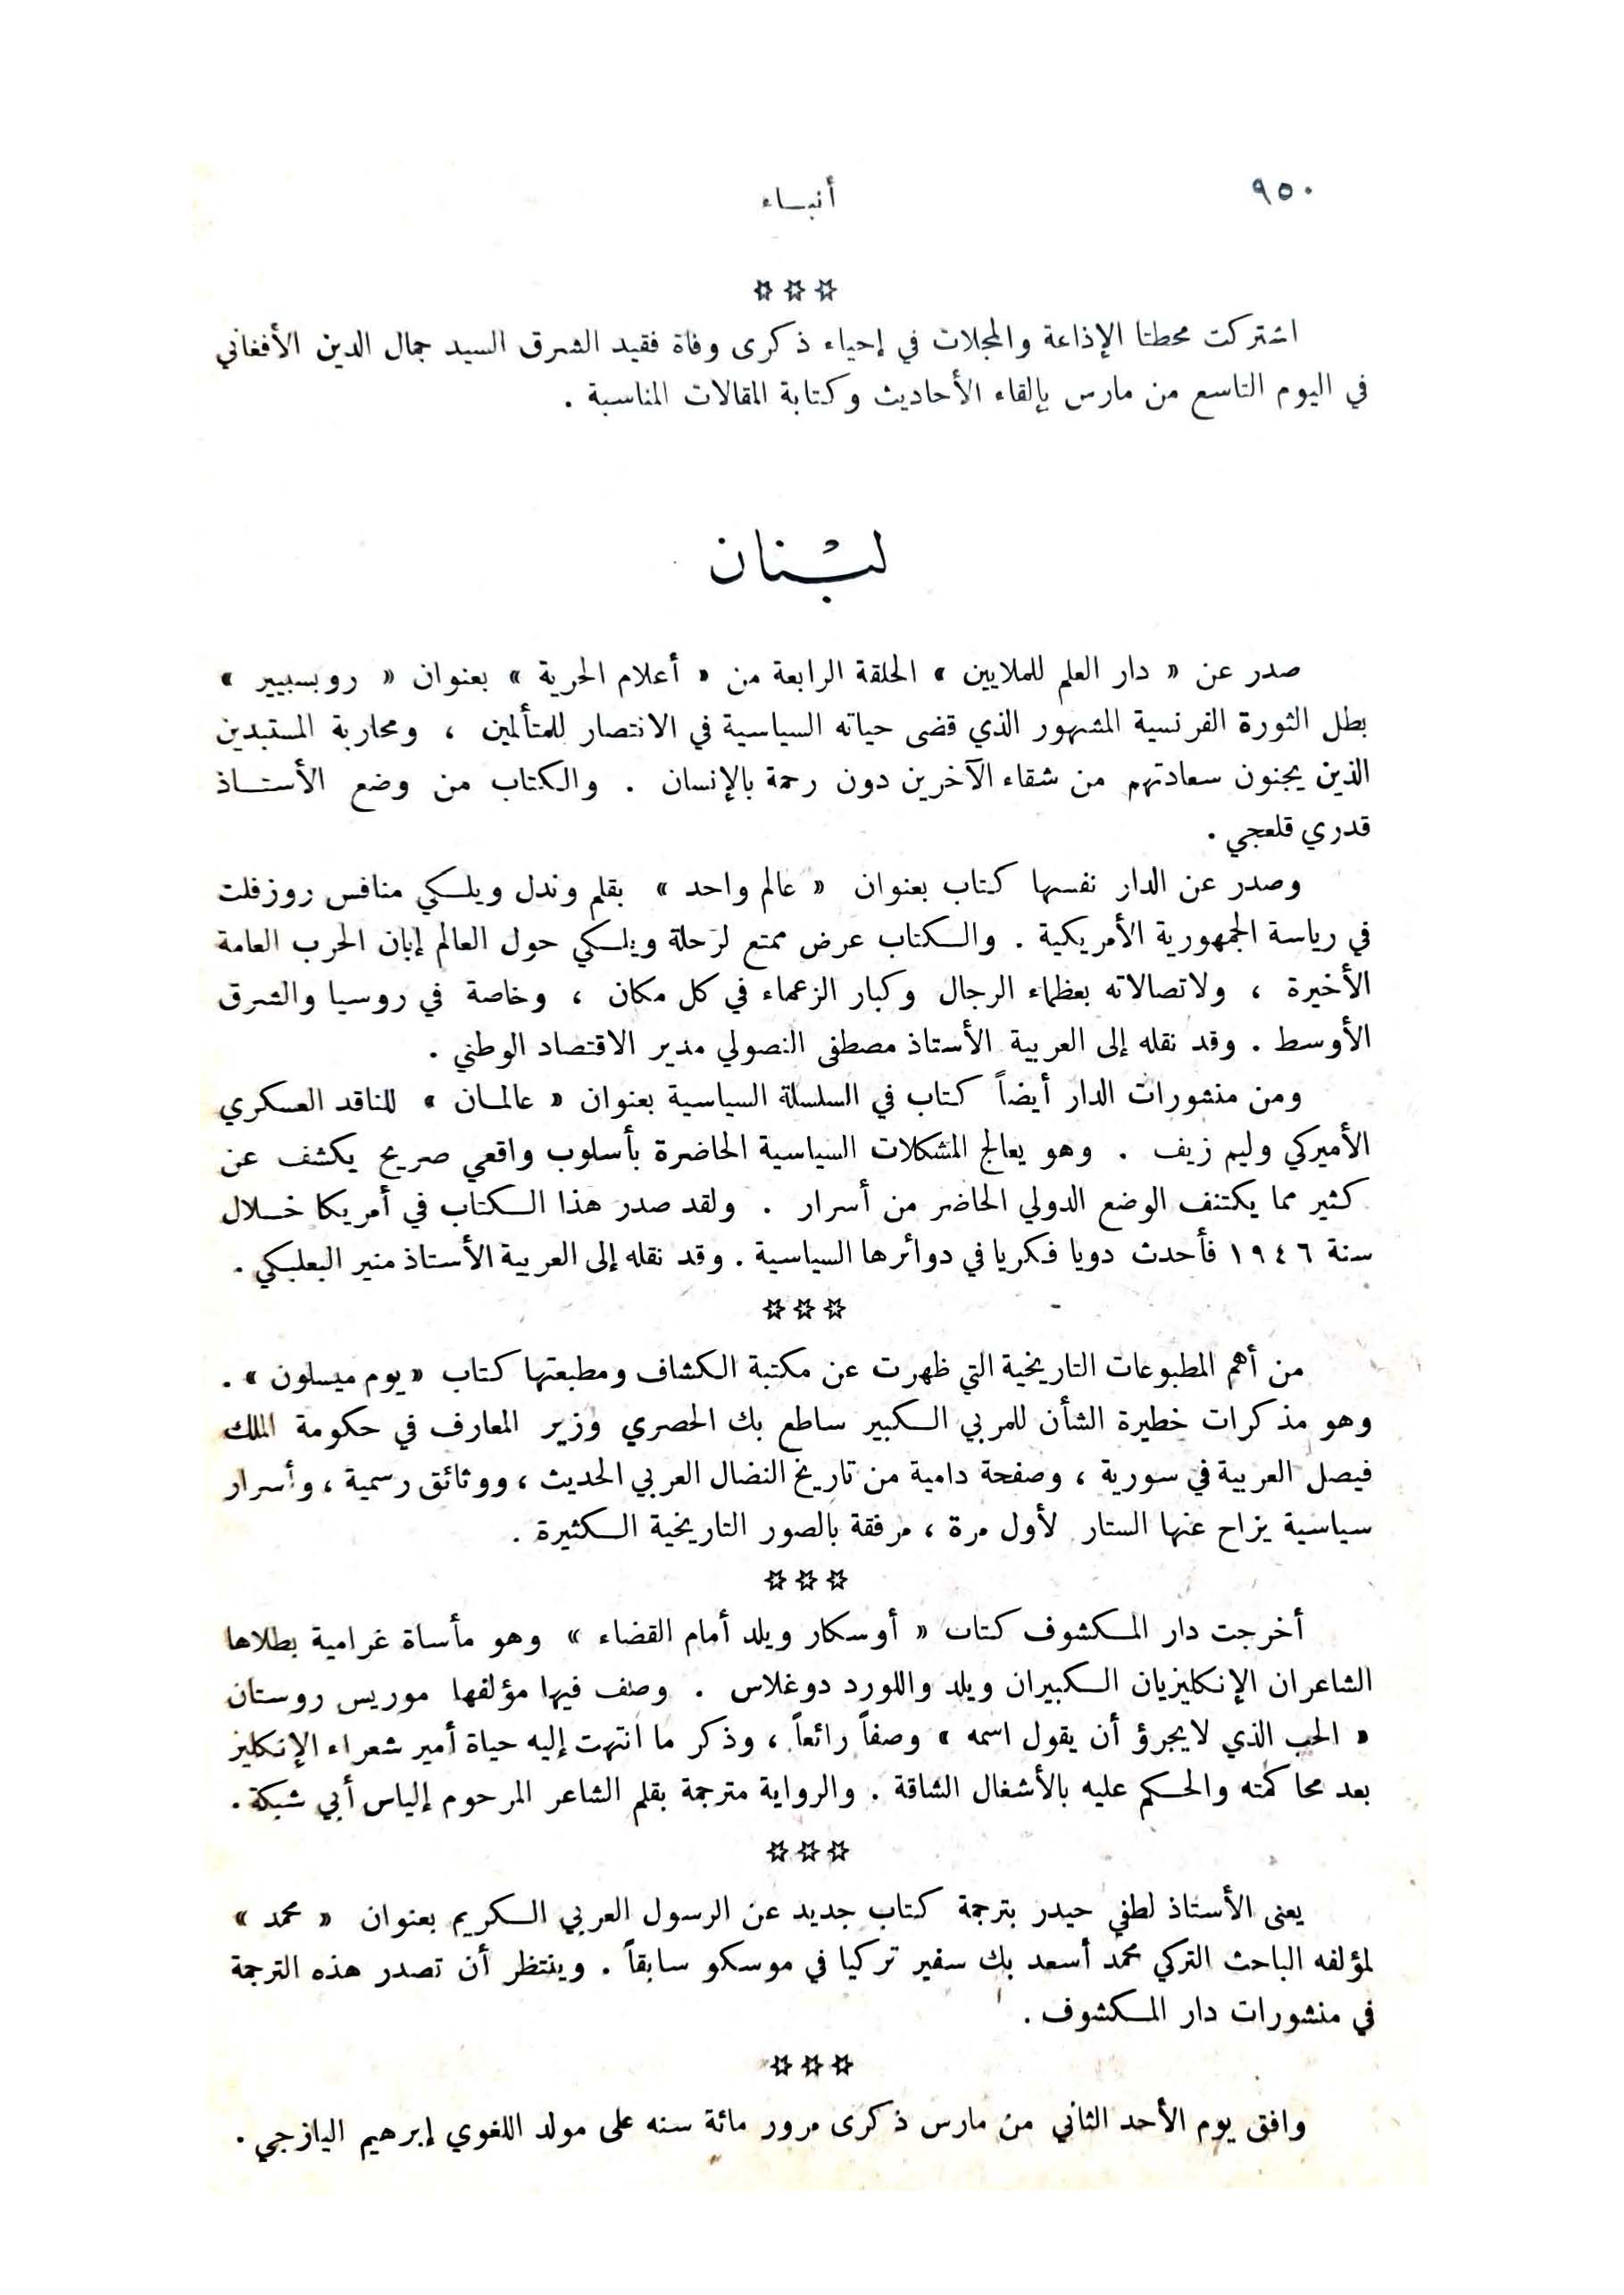 ٩٥٠
أنباء
☆☆☆
اشتركت محطتا الإذاعة والمجلات في إحياء ذكرى وفاة فقيد الشرق السيد جمال الدين الأفغاني
في اليوم التاسع من مارس بإلقاء الأحاديث وكتابة المقالات المناسبة .
لبْنان
صدر عن « دار العلم للملايين » الحلقة الرابعة من « أعلام الحرية » بعنوان « روبسبيير »
بطل الثورة الفرنسية المشهور الذي قضى حياته السياسية في الانتصار للمتألمين ، ومحاربة المستبدين
الذين يجنون سعادتهم من شقاء الآخرين دون رحمة بالإنسان . والكتاب من وضع الأستاذ
قدري قلعجي .
وصدر عن الدار نفسها كتاب بعنوان « عالم واحد » بقلم وندل ويلكي منافس روزفلت
في رياسة الجمهورية الأمريكية . والكتاب عرض ممتع لرحلة ويلكي حول العالم إبان الحرب العامة
الأخيرة ، ولاتصالاته بعظماء الرجال وكبار الزعماء في كل مكان ، وخاصة في روسيا والشرق
الأوسط . وقد نقله إلى العربية الأستاذ مصطفى النصولي مدير الاقتصاد الوطني .
ومن منشورات الدار أيضاً كتاب في السلسلة السياسية بعنوان « عالمان » للناقد العسكري
الأميركي وليم زيف . وهو يعالج المشكلات السياسية الحاضرة بأسلوب واقعي صريح يكشف عن
كثير مما يكتنف الوضع الدولي الحاضر من أسرار . ولقد صدر هذا الكتاب في أمريكا خلال
سنة ١٩٤٦ فأحدث دويا فكريا في دوائرها السياسية . وقد نقله إلى العربية الأستاذ منير البعلبكي .
☆☆☆
من أهم المطبوعات التاريخية التي ظهرت عن مكتبة الكشاف ومطبعتها كتاب « يوم ميسلون » .
وهو مذكرات خطيرة الشأن للمربي الكبير ساطع بك الحصري وزير المعارف في حكومة الملك
فيصل العربية في سورية ، وصفحة دامية من تاريخ النضال العربي الحديث ، ووثائق رسمية ، وأسرار
سياسية يزاح عنها الستار لأول مرة ، مرفقة بالصور التاريخية الكثيرة .
☆☆☆
أخرجت دار المكشوف كتاب « أوسكار ويلد أمام القضاء » وهو مأساة غرامية بطلاها
الشاعران الإنكليزيان الكبيران ويلد واللورد دوغلاس . وصف فيها مؤلفها موريس روستان
« الحب الذي لا يجرؤ أن يقول اسمه » وصفاً رائعاً ، وذكر ما انتهت إليه حياة أمير شعراء الإنكليز
بعد محاكمته والحكم عليه بالأشغال الشاقة . والرواية مترجمة بقلم الشاعر المرحوم إلياس أبي شبكة .
☆☆☆
يعنى الأستاذ لطفي حيدر بترجمة كتاب جديد عن الرسول العربي الكريم بعنوان « محمد »
لمؤلفه الباحث التركي محمد أسعد بك سفير تركيا في موسكو سابقاً . وينتظر أن تصدر هذه الترجمة
في منشورات دار المكشوف .
☆☆☆
وافق يوم الأحد الثاني من مارس ذكرى مرور مائة سنه على مولد اللغوي إبرهيم اليازجي .